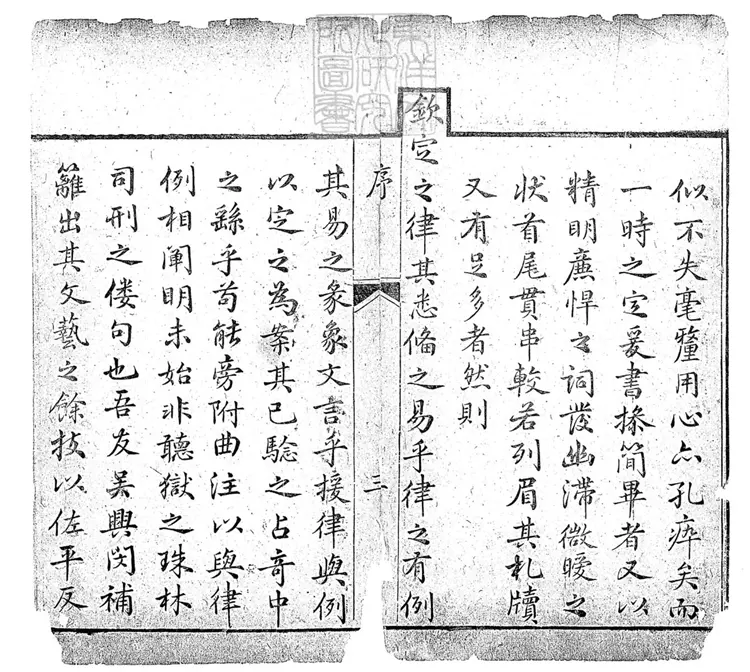 東洋文
化研究
所圖書
似不失毫釐用心亦孔瘁矣而
一時之定爰書操簡畢者又以
精明廉悍之詞發幽滯微曖之
狀首尾貫串較若列眉其札牘
又有足多者然則
欽定之律其悉備之易乎律之有例
序
三
其易之彖象文言乎援律與例
以定之為案其已驗之占奇中
之繇乎苟能旁附曲注以與律
例相闡明未始非聽獄之珠林
司刑之僂句也吾友吳興閔補
籬出其文藝之餘技以佐平反